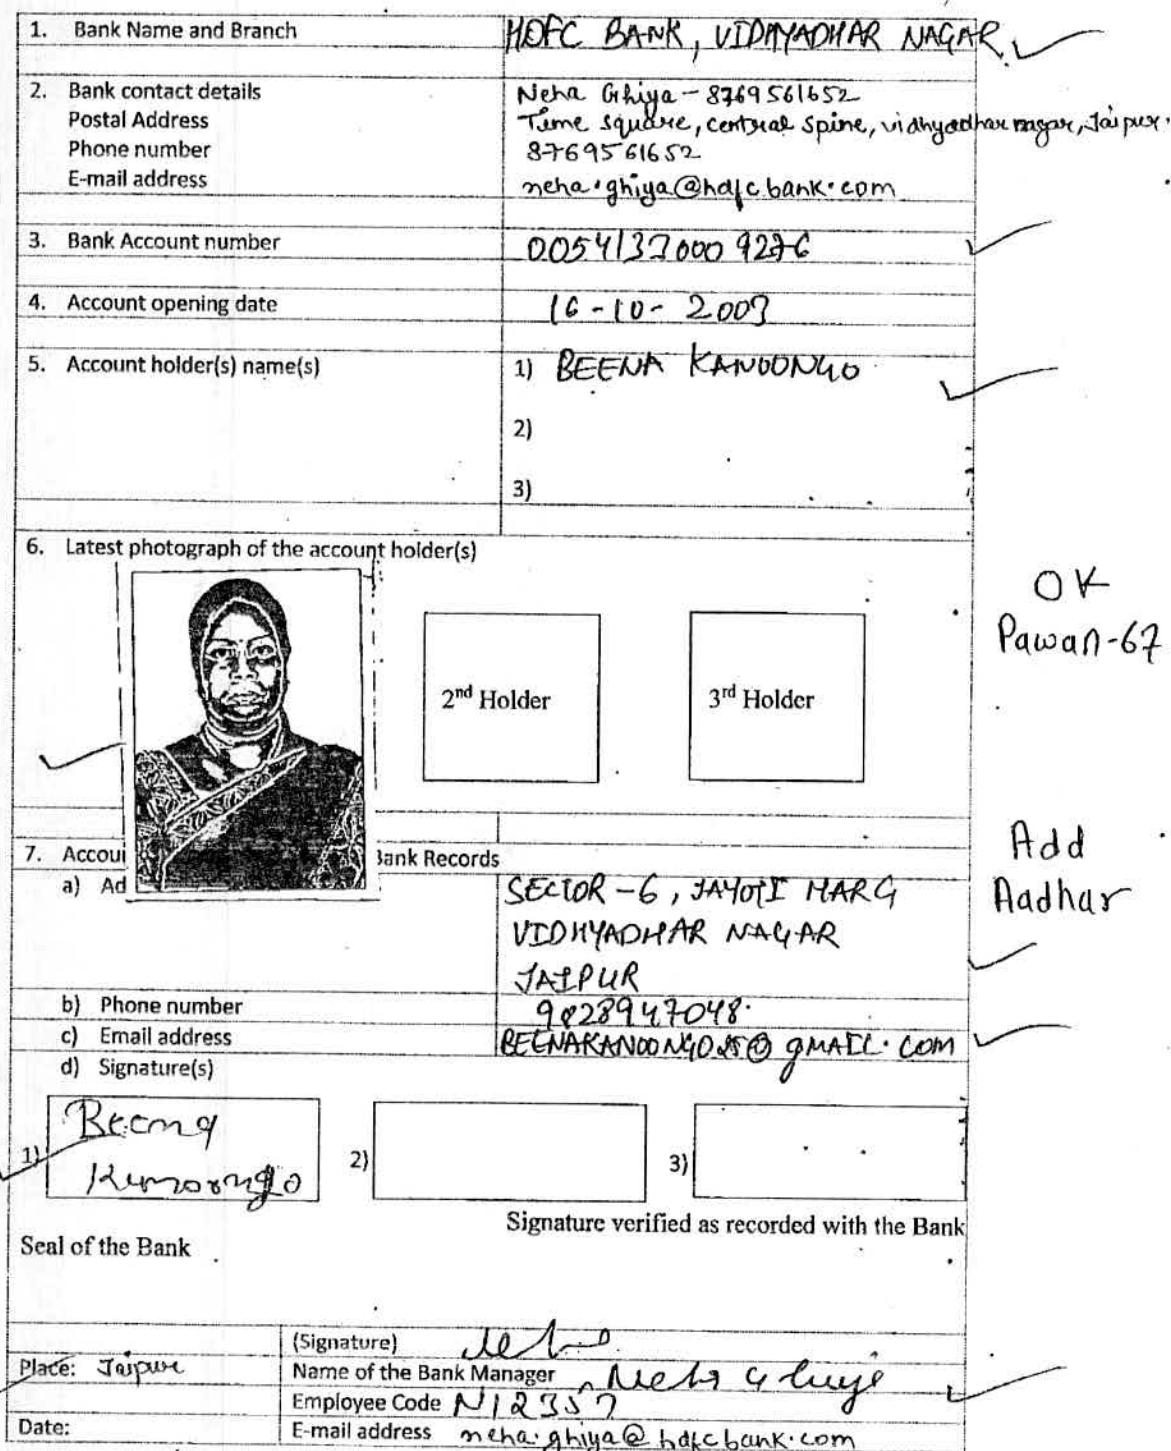 1. Bank Name and Branch HDFC BANK, VIDHYADHAR NAGAR
2. Bank contact details Neha Ghiya - 8769561652
Postal Address Time square, central spine, vidhyadhar nagar, Jaipur.
Phone number 8769561652
E-mail address neha.ghiya@hdfcbank.com
3. Bank Account number
4. Account opening date 16-10-2007
5. Account holder(s) name(s) 1) BEENA KANOONGO
2)
3)
6. Latest photograph of the account holder(s)
OK
Pawan-67
2nd Holder 3rd Holder
Add
Aadhar
7. Accou Bank Records
a) Ad SECTOR-6, JAYOTI MARG
VIDHYADHAR NAGAR
JAIPUR
b) Phone number 9828947048.
c) Email address BEENAKANOONGO25@gmail.com
d) Signature(s)
1) Beena
Kanoongo
2) 3)
Signature verified as recorded with the Bank
Seal of the Bank
(Signature)
Place: Jaipur Name of the Bank Manager Neha Ghiya
Employee Code N12357
Date: E-mail address neha.ghiya@hdfcbank.com